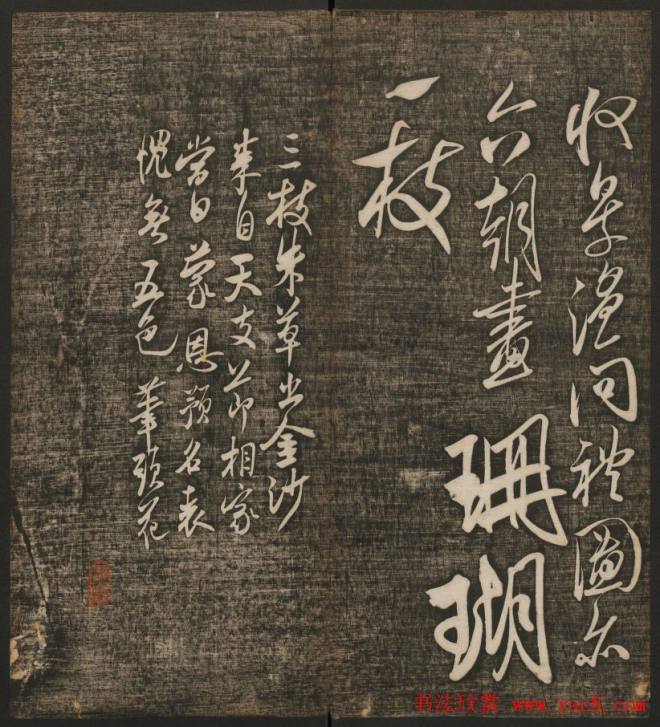 收景溫問禮圖亦
六朝畫珊瑚
一枝
三枝朱草出金沙
來自天支節相家
當日蒙恩預名表
愧無五色筆頭花
书法欣赏 www.yac8.com